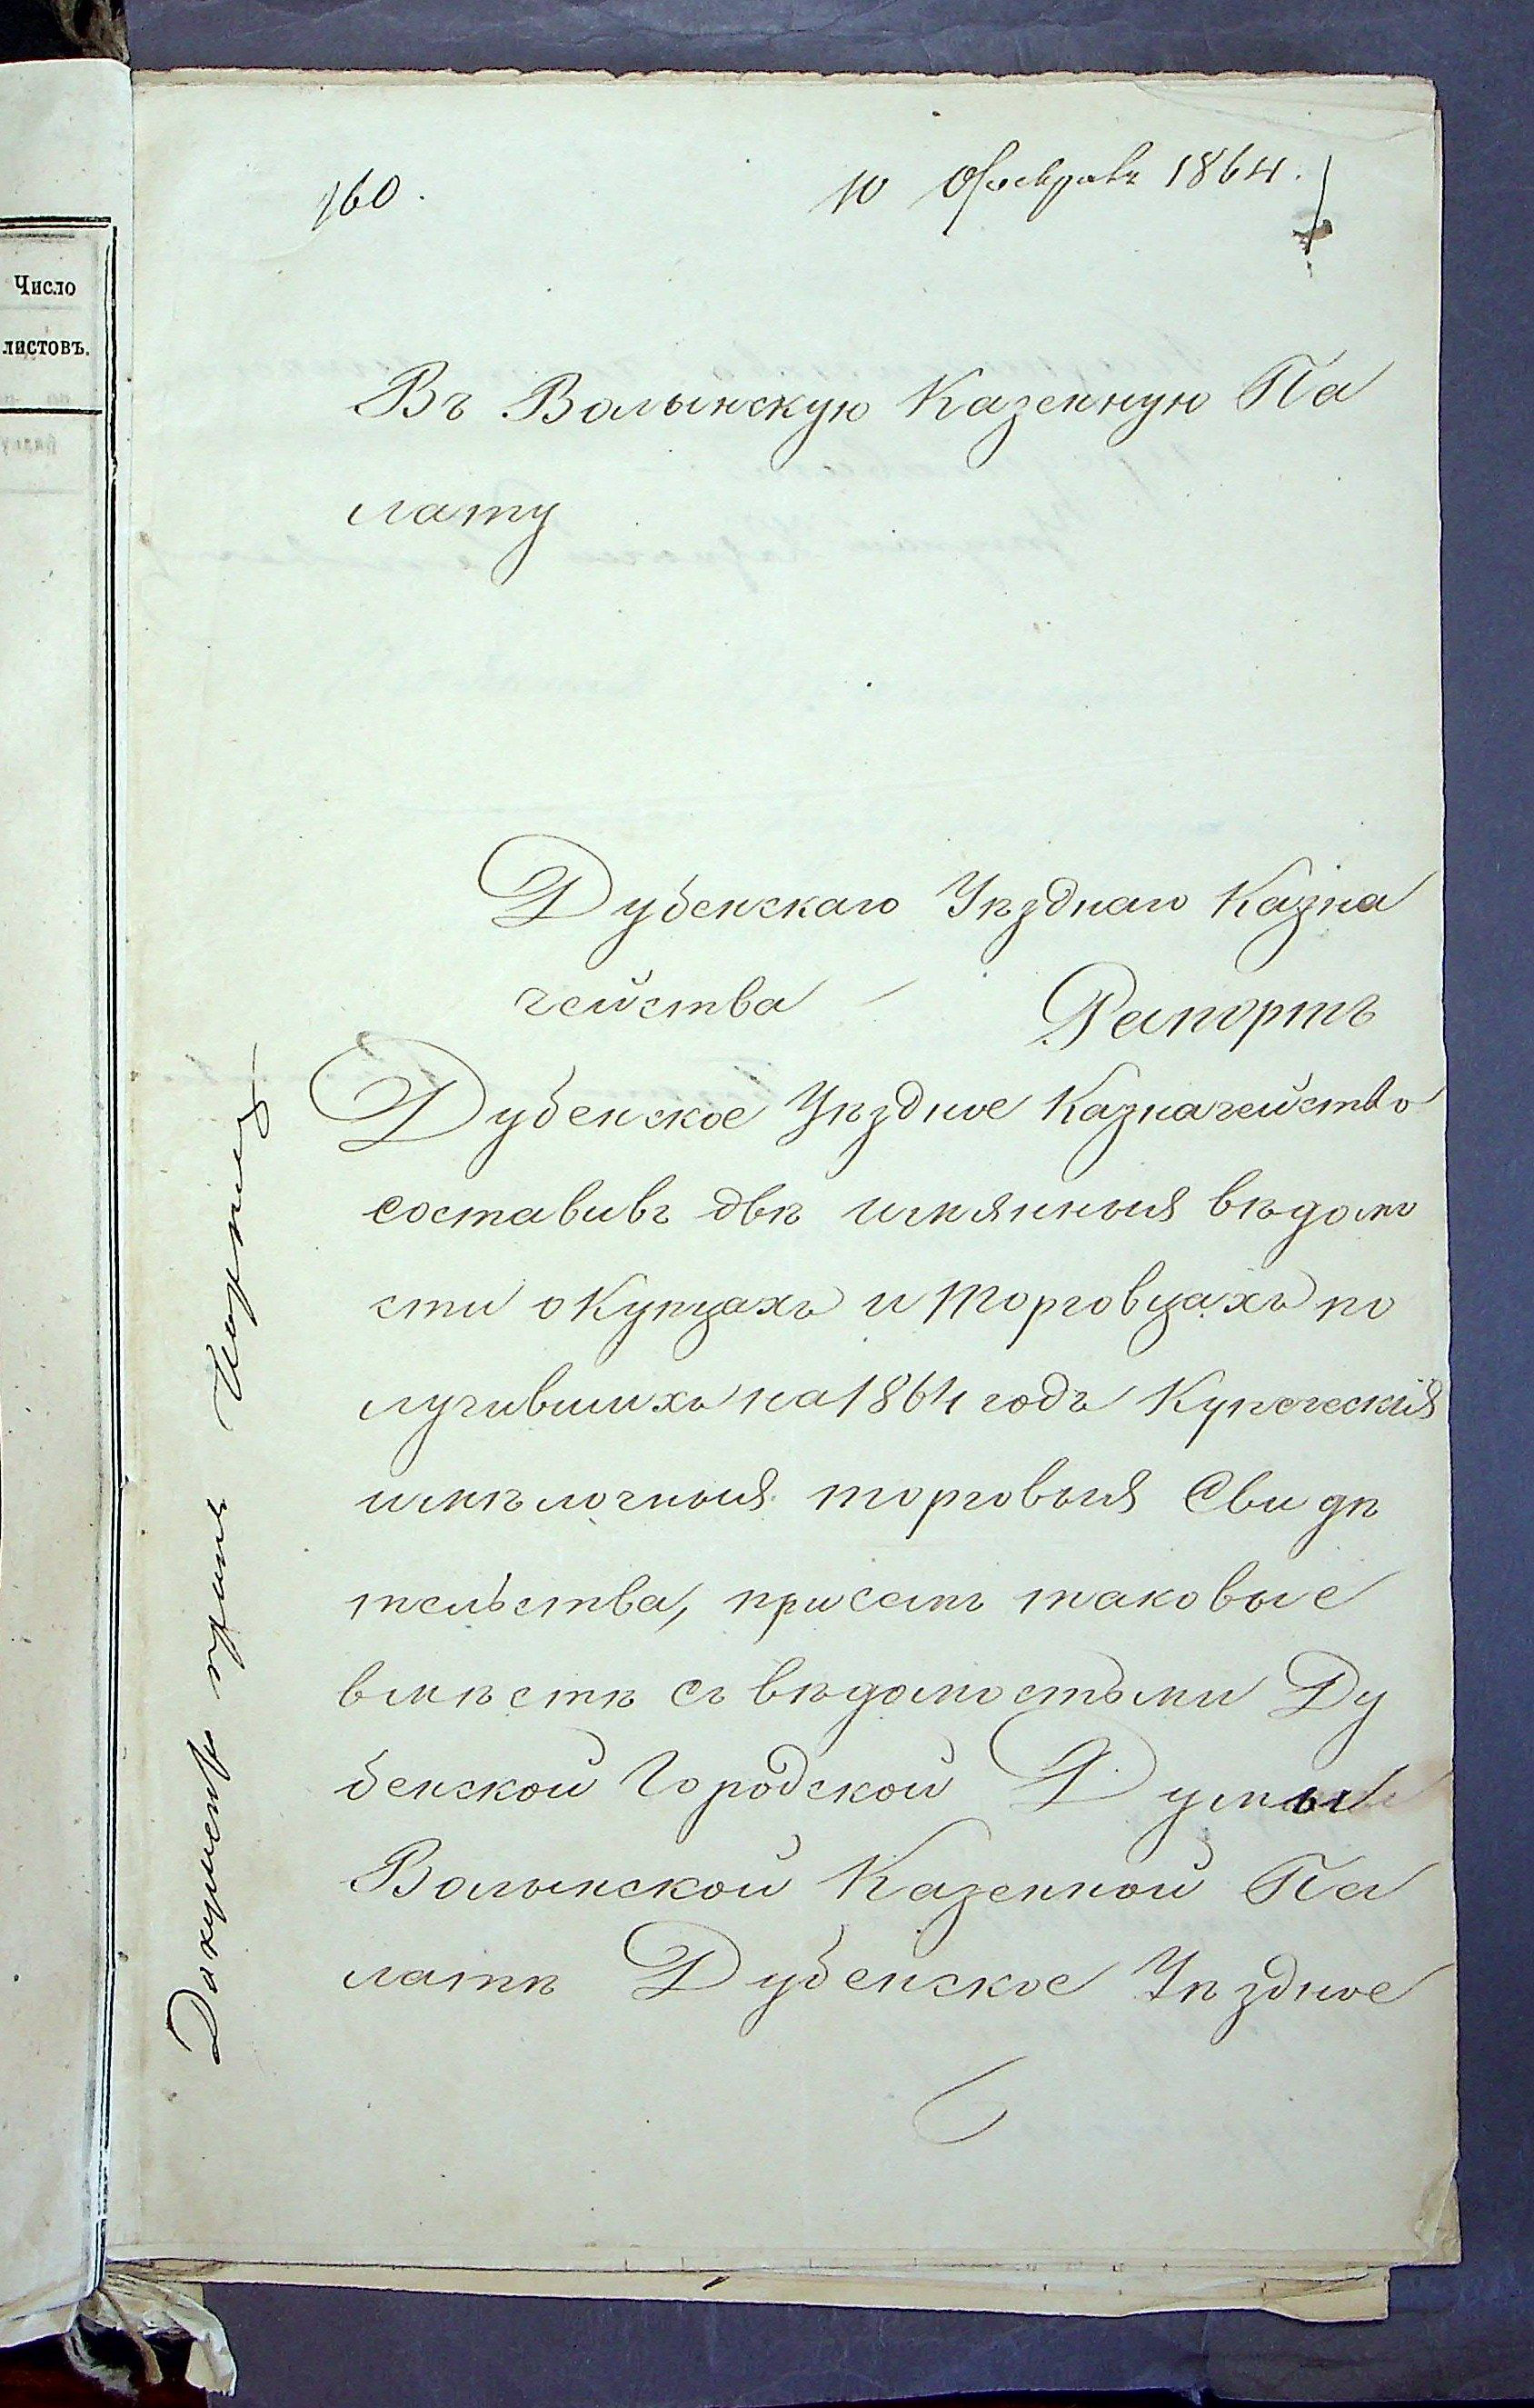 Число
листовъ.
160. 10 Февраль 1864.
Въ Волынскую Казенную Па
лату
Дубенскаго Уѣзднаго Казна
чейства Рапортъ
Дубенское Уѣздное Казначейство
составивъ двѣ имянныя вѣдомо
сти о Купцахъ и торговцахъ по
лучившихъ на 1864 годъ Купеческія
и мѣлочныя торговыя Свидѣ
тельства, при семъ таковые
вмѣстѣ съ вѣдомостьми Ду
бенской Городской Думы
Волынской Казенной Па
латѣ Дубенское Уѣздное
Документы принялъ